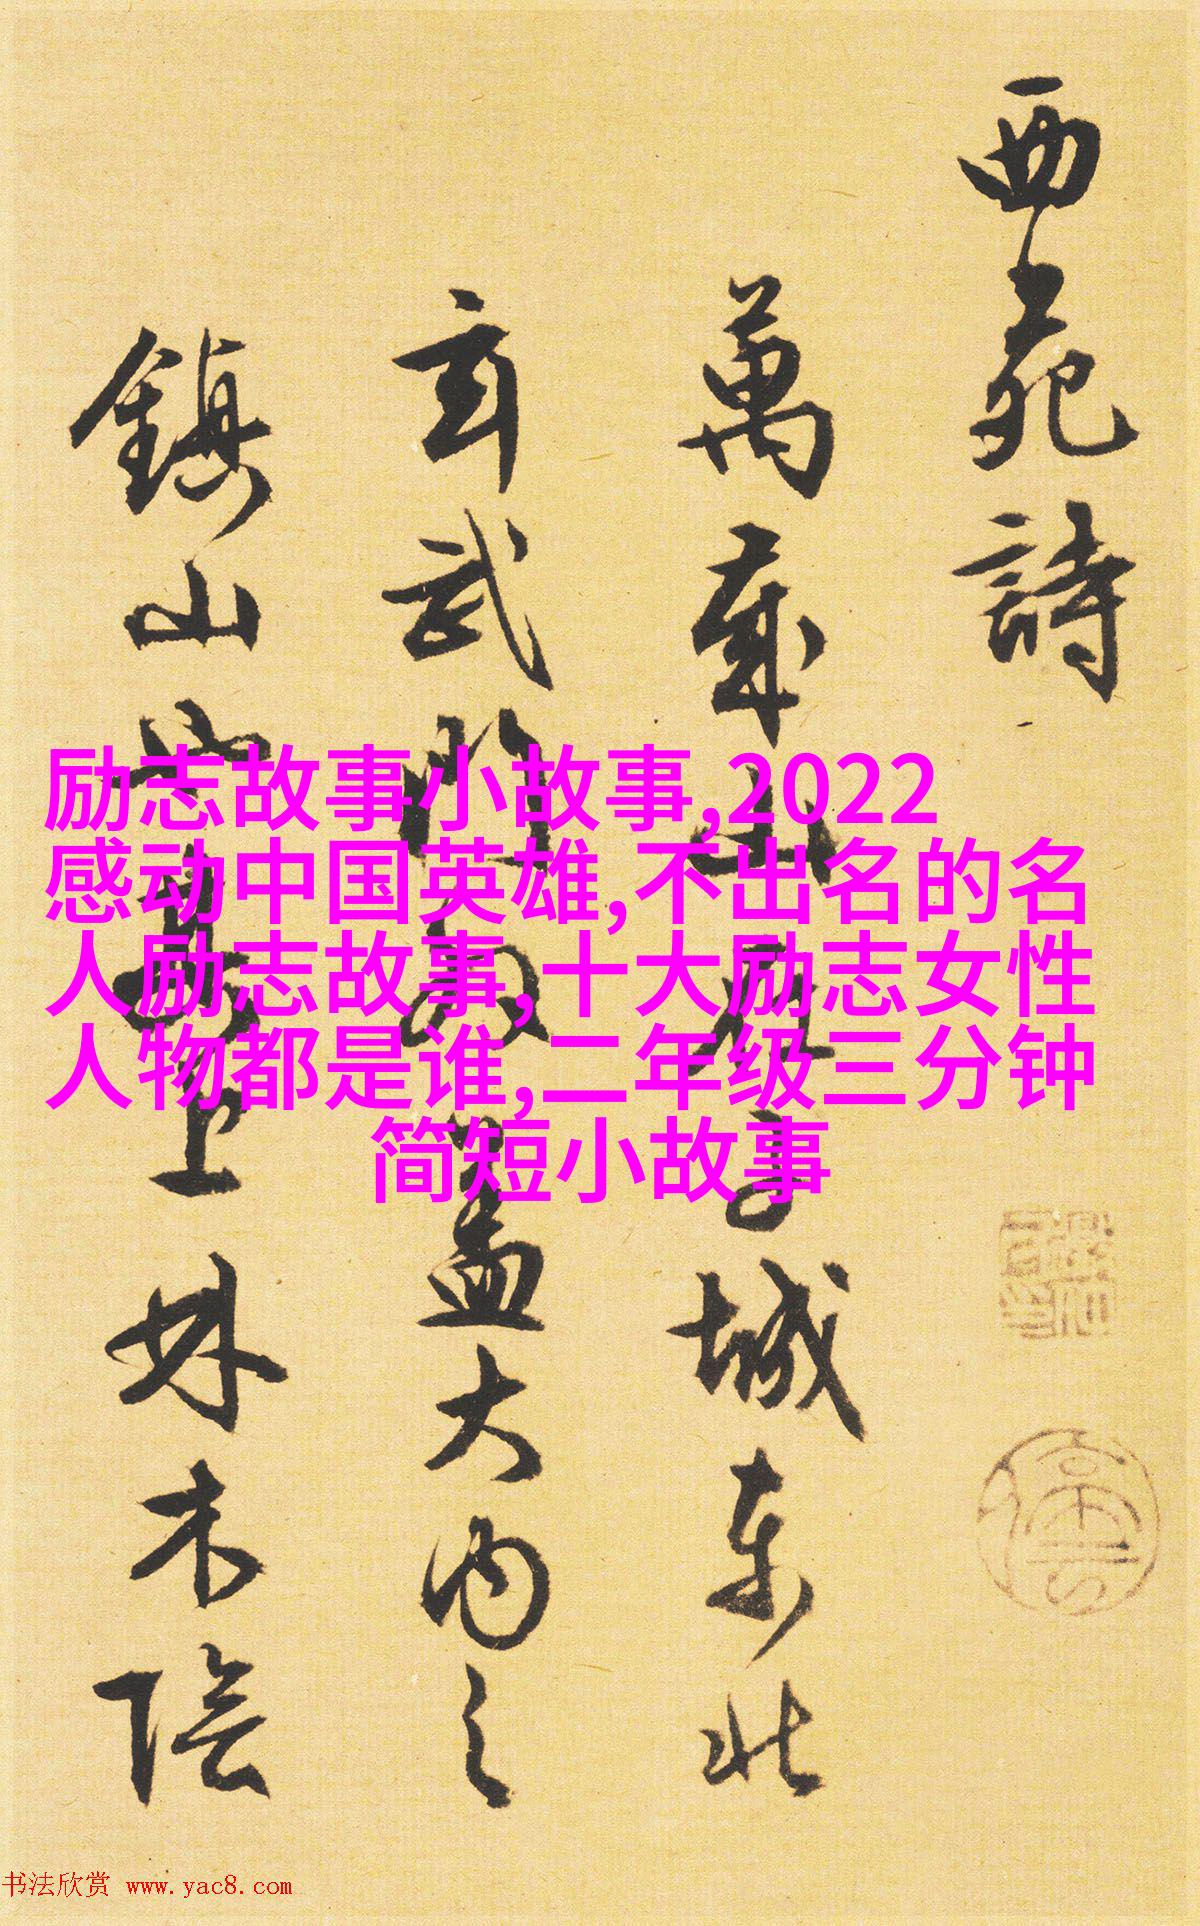 西苑詩
萬歲山在子城東北
玄武門外蓋大內之
鎮山也其上林木陰
励志故事小故事,2022
感动中国英雄,不出名的名
人励志故事,十大励志女性
人物都是谁,二年级三分钟
简短小故事
书法欣赏 www.yac8.com